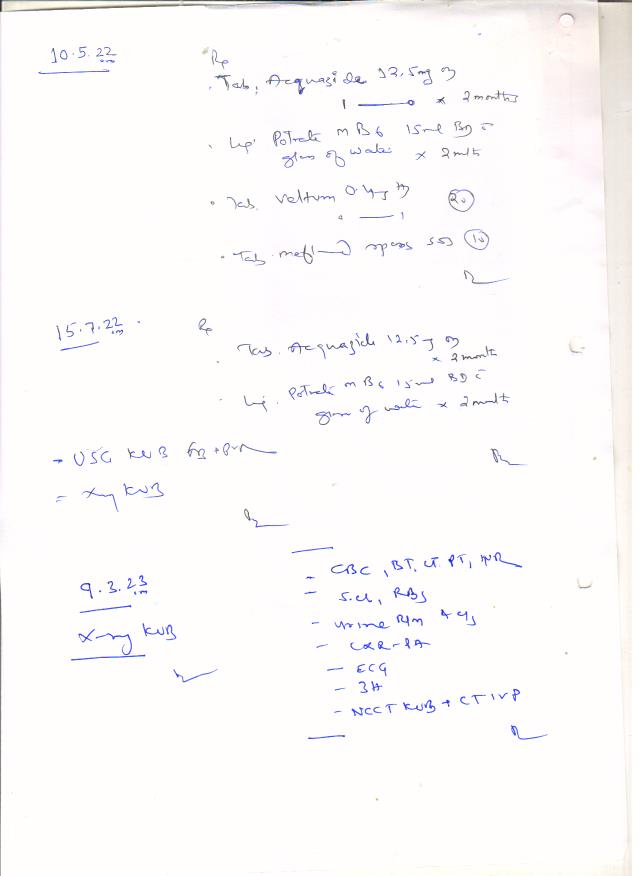 10.5.22
Rp
. Tab. Acquazide 12.5mg
1 —— 0 x 2 months
. Liq. Potrate m B6 15ml BD c
glass of water x 2 mths
. Tab. Veltum 0.4mg
0 —— 1 20
. Tab. spas SOS 10
15.7.22
Rp
. Tab. Acquazide 12.5mg
x 2 month
. Liq. Potrate m B6 15ml BD c
glass of water x 2 mths
→ USG KUB + PVR
= Xray KUB
9.3.23
X-ray KUB
- CBC, BT, CT, PT, INR
- S.Cr, RBS
- Urine R/M + C/S
- CXR-PA
- ECG
- 3H
- NCCT KUB + CT IVP